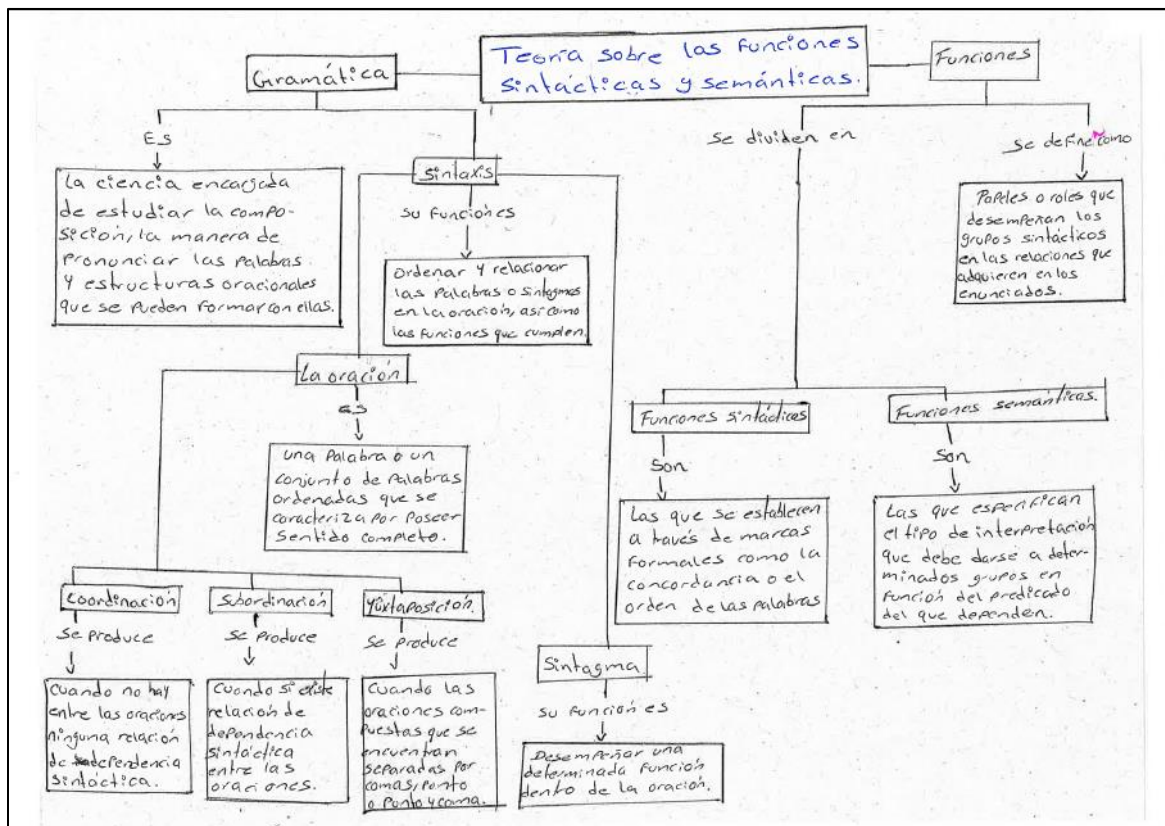 Teoría sobre las funciones
sintácticas y semánticas.
Gramática
Es
La ciencia encargada
de estudiar la compo-
sición, la manera de
pronunciar las palabras
y estructuras oracionales
que se pueden formar con ellas.
Sintaxis
su función es
Ordenar y relacionar
las palabras o sintagmas
en la oración, así como
las funciones que cumplen.
La oración
es
una palabra o un
conjunto de palabras
ordenadas que se
caracteriza por poseer
sentido completo.
Coordinación
Se produce
Cuando no hay
entre las oraciones
ninguna relación
de dependencia
sintáctica.
Subordinación
Se produce
Cuando si existe
relación de
dependencia
sintáctica
entre las
oraciones.
Yuxtaposición.
Se produce
Cuando las
oraciones com-
puestas que se
encuentran
separadas por
comas, punto
o punto y coma.
Sintagma
su función es
Desempeñar una
determinada función
dento de la oración.
Funciones
Se dividen en
Funciones sintácticas
Son
Las que se establecen
a través de marcas
formales como la
concordancia o el
orden de las palabras
Funciones semánticas.
Son
Las que especifican
el tipo de interpretación
que debe darse a deter-
minados grupos en
función del predicado
del que dependen.
Se define como
Papeles o roles que
desempeñan los
grupos sintácticos
en las relaciones que
adquieren en los
enunciados.